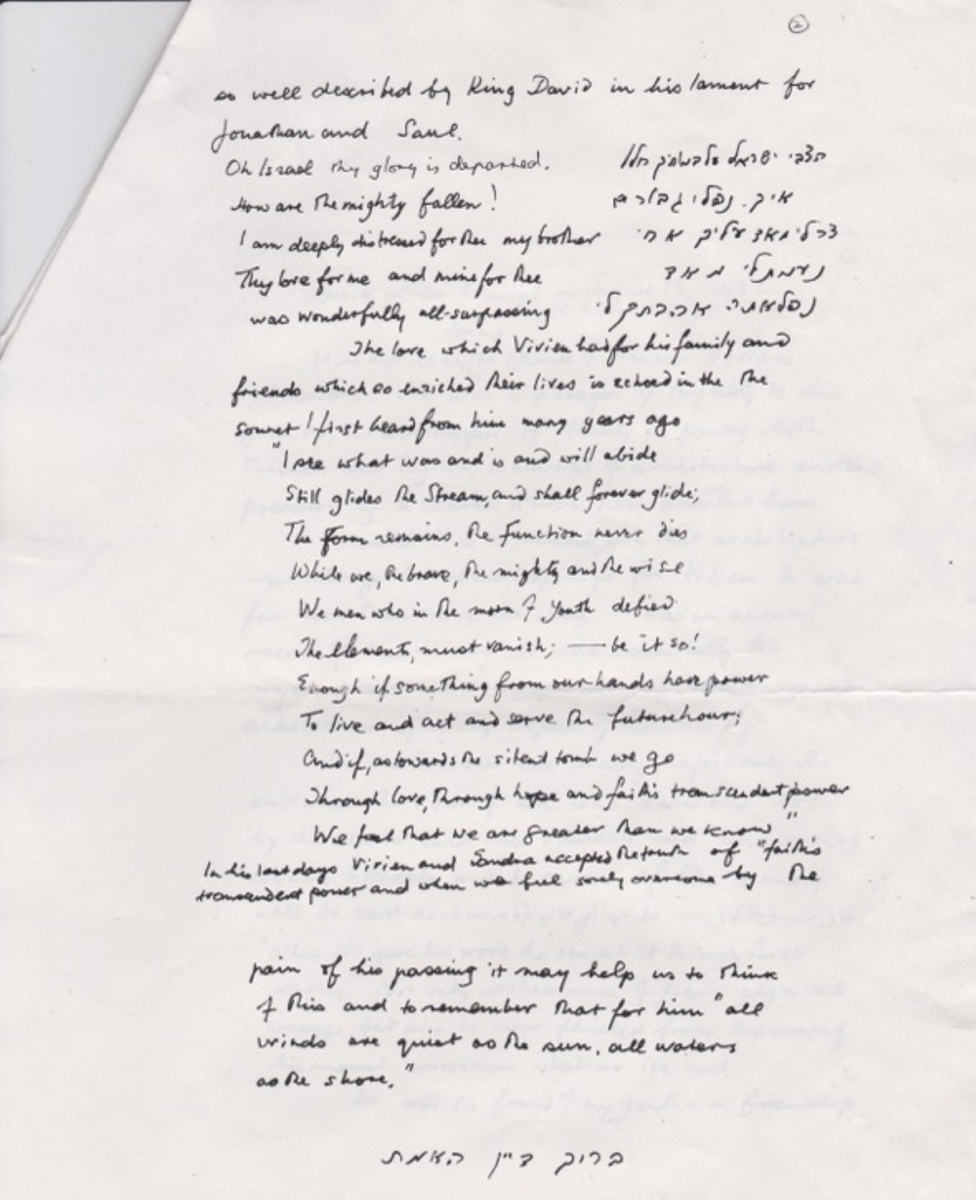 ②
as well described by King David in his lament for
Jonathan and Saul.
Oh Israel thy glory is departed. הצבי ישראל על במתיך חלל
How are the mighty fallen! איך נפלו גבורים
I am deeply distressed for thee my brother צר לי מאד עליך אחי
Thy love for me and mine for thee נעמת לי מאד
was wonderfully all-surpassing נפלאתה אהבתך לי
The love which Vivien had for his family and
friends which so enriched their lives is echoed in the the
sonnet I first heard from him many years ago
"I see what was and is and will abide
Still glides the Stream, and shall forever glide;
The Form remains, the Function never dies
While we, the brave, the mighty and the wise
We men who in the morn of youth defied
The Elements, must vanish; — be it so!
Enough if something from our hands have power
To live and act and serve the future hour;
And if, as towards the silent tomb we go
Through love, through hope and faith's transcendent power
We feel that we are greater than we know"
In his last days Vivien and Sandra accepted the truth of "faith's
transcendent power and when we feel sorely overcome by the
pain of his passing it may help us to think
of this and to remember that for him "all
winds are quiet as the sun, all waters
as the shore."
ברוך דיין האמת